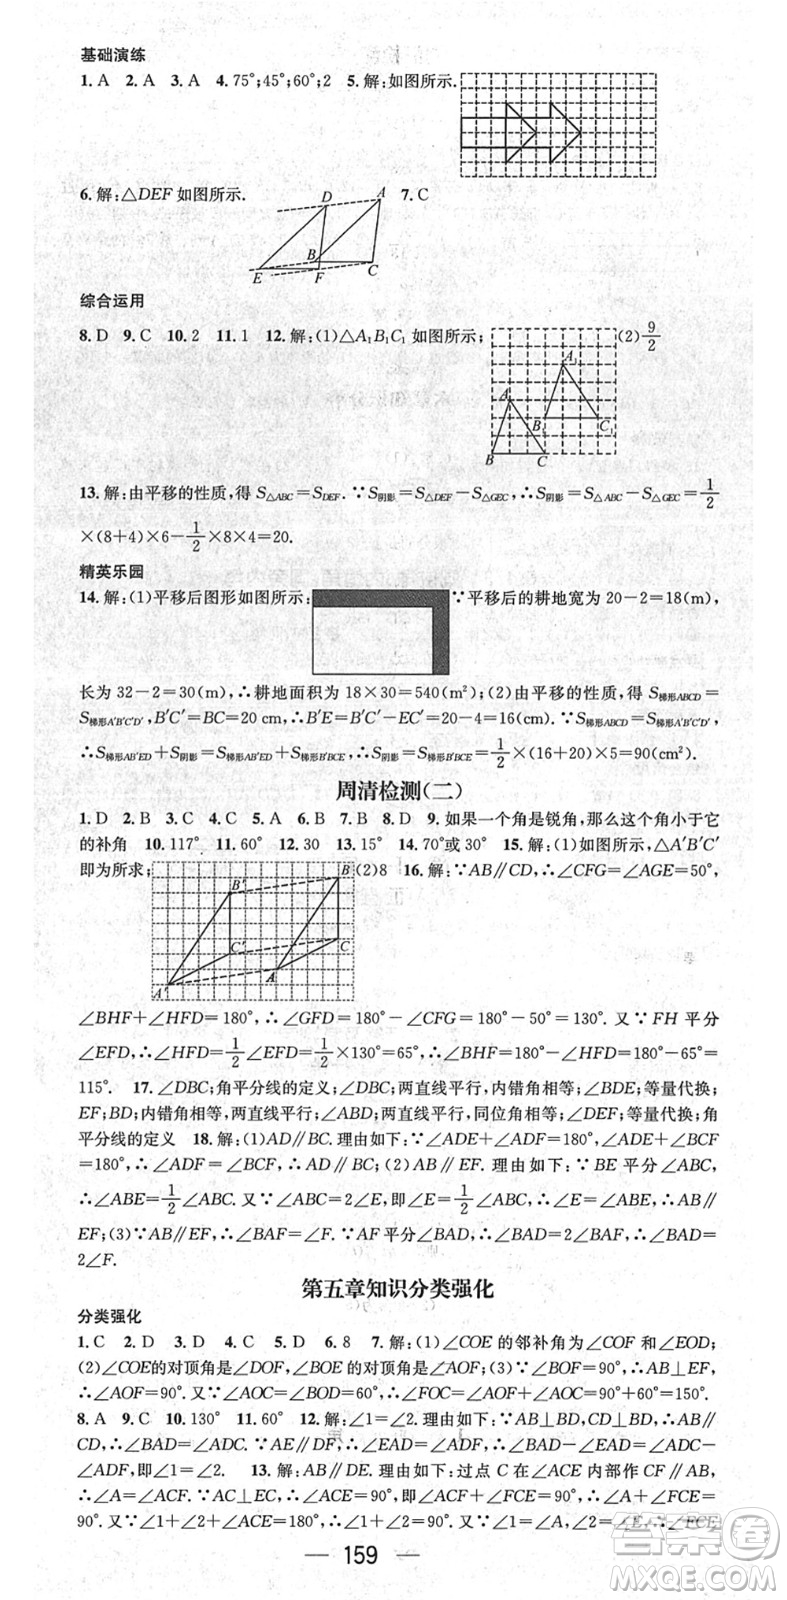 基础演练
1. A 2. A 3. A 4. 75°;45°;60°;2 5. 解:如图所示.
6. 解:△DEF 如图所示. 7. C
D A B C E F
综合运用
8. D 9. C 10. 2 11. 1 12. 解:(1)△A₁B₁C₁ 如图所示; (2)9/2
A₁ A B₁ C₁ B C
13. 解:由平移的性质,得 S△ABC=SDEF. ∵S阴影=S△DEF-S△GEC,∴S阴影=S△ABC-S△GEC=1/2
×(8+4)×6-1/2×8×4=20.
精英乐园
14. 解:(1)平移后图形如图所示: ∵平移后的耕地宽为 20-2=18(m),
长为 32-2=30(m),∴耕地面积为 18×30=540(m²);(2)由平移的性质,得 S梯形ABCD=
S梯形A′B′C′D′,B′C′=BC=20 cm,∴B′E=B′C′-EC′=20-4=16(cm). ∵S梯形ABCD=S梯形A′B′C′D′,
∴S梯形AB′ED+S阴影=S梯形AB′ED+S梯形B′BCE,∴S阴影=S梯形B′BCE=1/2×(16+20)×5=90(cm²).
周清检测(二)
1. D 2. B 3. C 4. C 5. A 6. B 7. B 8. D 9. 如果一个角是锐角,那么这个角小于它
的补角 10. 117° 11. 60° 12. 30 13. 15° 14. 70°或 30° 15. 解:(1)如图所示,△A′B′C′
即为所求; (2)8 16. 解:∵AB∥CD,∴∠CFG=∠AGE=50°,
B′ B C′ C A A′
∠BHF+∠HFD=180°,∴∠GFD=180°-∠CFG=180°-50°=130°. 又∵FH 平分
∠EFD,∴∠HFD=1/2∠EFD=1/2×130°=65°,∴∠BHF=180°-∠HFD=180°-65°=
115°. 17. ∠DBC;角平分线的定义;∠DBC;两直线平行,内错角相等;∠BDE;等量代换;
EF;BD;内错角相等,两直线平行;∠ABD;两直线平行,同位角相等;∠DEF;等量代换;角
平分线的定义 18. 解:(1)AD∥BC. 理由如下:∵∠ADE+∠ADF=180°,∠ADE+∠BCF
=180°,∴∠ADF=∠BCF,∴AD∥BC;(2)AB∥EF. 理由如下:∵BE 平分∠ABC,
∴∠ABE=1/2∠ABC. 又∵∠ABC=2∠E,即∠E=1/2∠ABC,∴∠ABE=∠E,∴AB∥
EF;(3)∵AB∥EF,∴∠BAF=∠F. ∵AF 平分∠BAD,∴∠BAD=2∠BAF,∴∠BAD=
2∠F.
第五章知识分类强化
分类强化
1. C 2. D 3. D 4. D 5. D 6. 8 7. 解:(1)∠COE 的邻补角为∠COF 和∠EOD;
(2)∠COE 的对顶角是∠DOF,∠BOE 的对顶角是∠AOF;(3)∵∠BOF=90°,∴AB⊥EF,
∴∠AOF=90°. 又∵∠AOC=∠BOD=60°,∴∠FOC=∠AOF+∠AOC=90°+60°=150°.
8. A 9. C 10. 130° 11. 60° 12. 解:∠1=∠2. 理由如下:∵AB⊥BD,CD⊥BD,
∴AB∥CD,∴∠2=∠AEF. ∵AE∥DF,∴∠1=∠AEF,
∴∠1=∠2. 13. 解:AB∥DE. 理由如下:过点 C 在∠ACE 内部作 CF∥AB,
∴∠A=∠ACF. ∵AC⊥CE,∴∠ACE=90°,即∠ACF+∠FCE=90°,∴∠A+∠FCE=
90°. 又∵∠1+∠2+∠ACE=180°,∴∠1+∠2=90°. 又∵∠1=∠A,∠2=∠E,∴∠ECF
159
答案圈
MXQE.COM